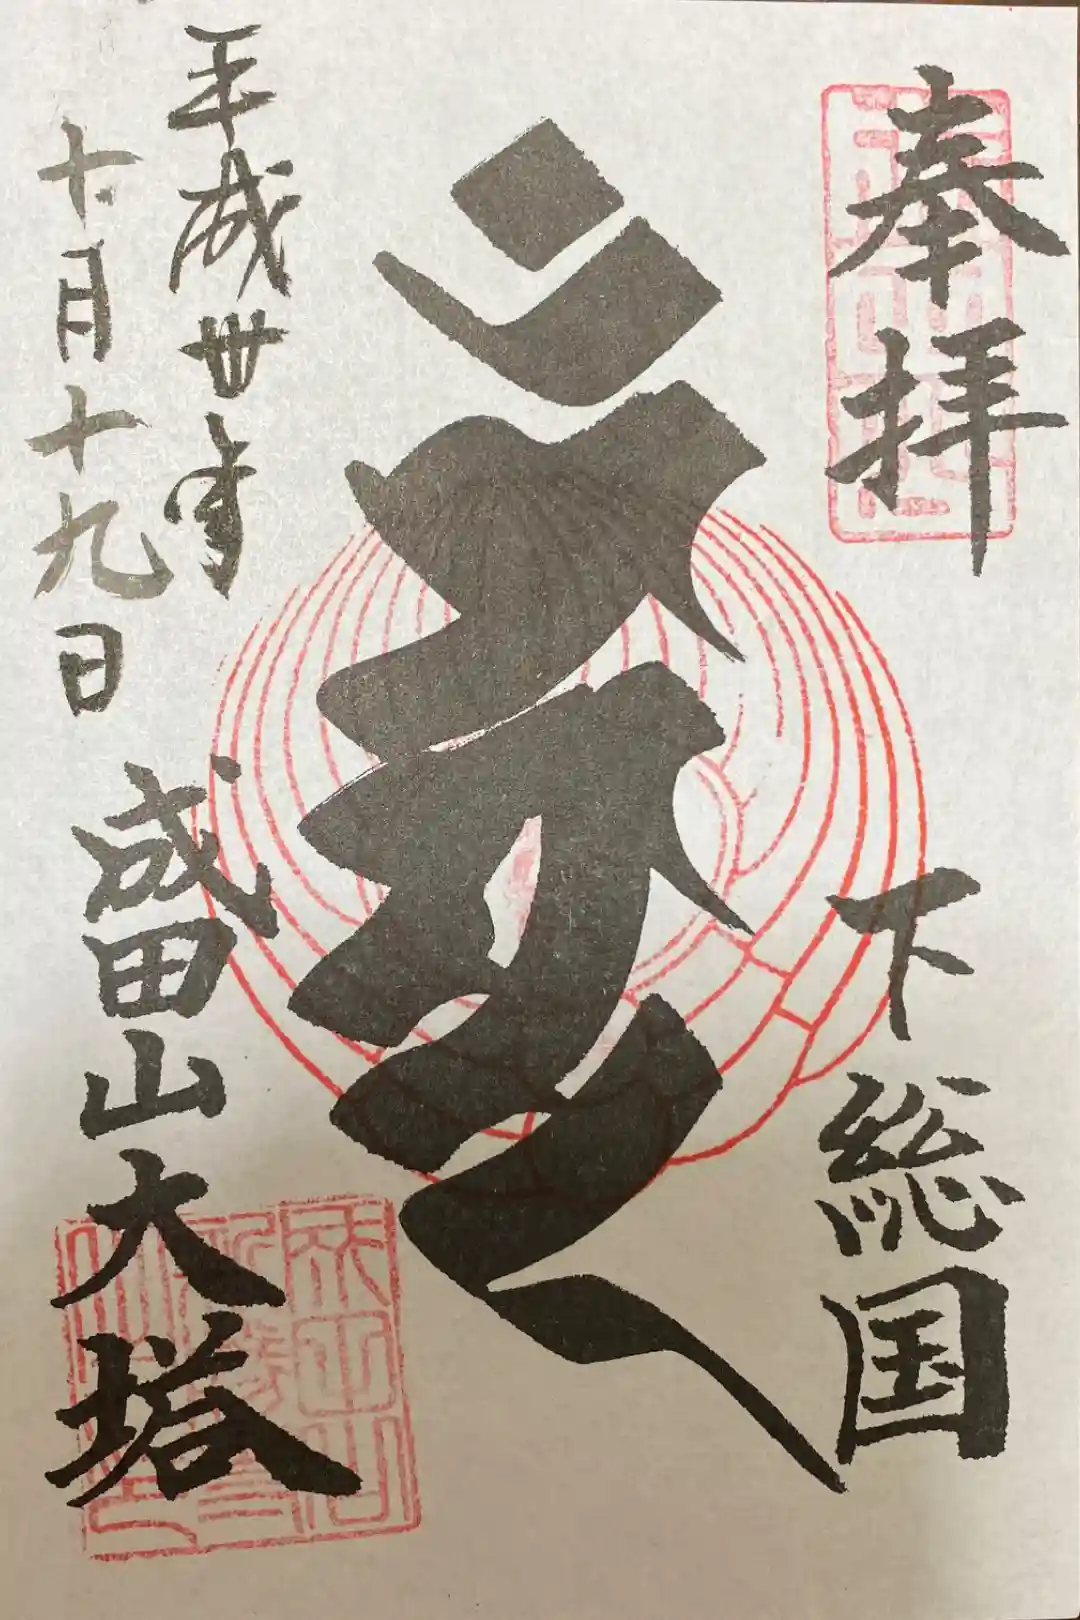 奉拝
下総国
平成丗年
十月十九日
成田山大塔